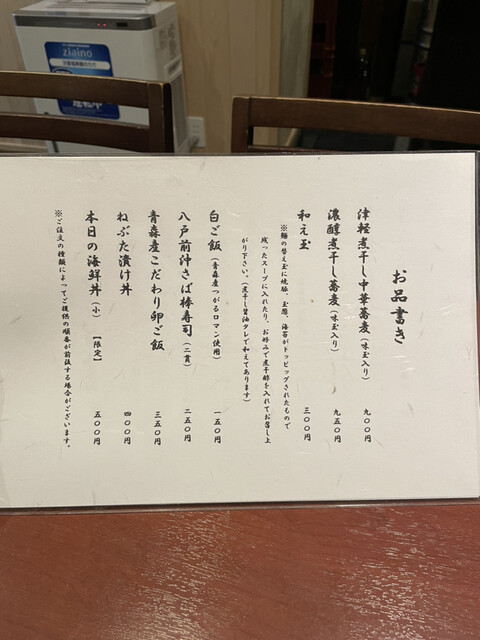 お品書き
津軽煮干し中華蕎麦(味玉入り) 九〇〇円
濃醇煮干し蕎麦(味玉入り) 九五〇円
和え玉 三〇〇円
※麺の替え玉に焼豚、玉葱、海苔がトッピングされたもので
残ったスープに入れたり、お好みで煮干酢を入れてお召し上
がり下さい。(煮干し醤油タレで和えてあります)
白ご飯(青森産つがるロマン使用) 一五〇円
八戸前沖さば棒寿司(二貫) 二五〇円
青森産こだわり卵ご飯 三五〇円
ねぶた漬け丼 四〇〇円
本日の海鮮丼(小)【限定】 五〇〇円
※ご注文の種類によってご提供の順番が前後する場合がございます。
ziaino